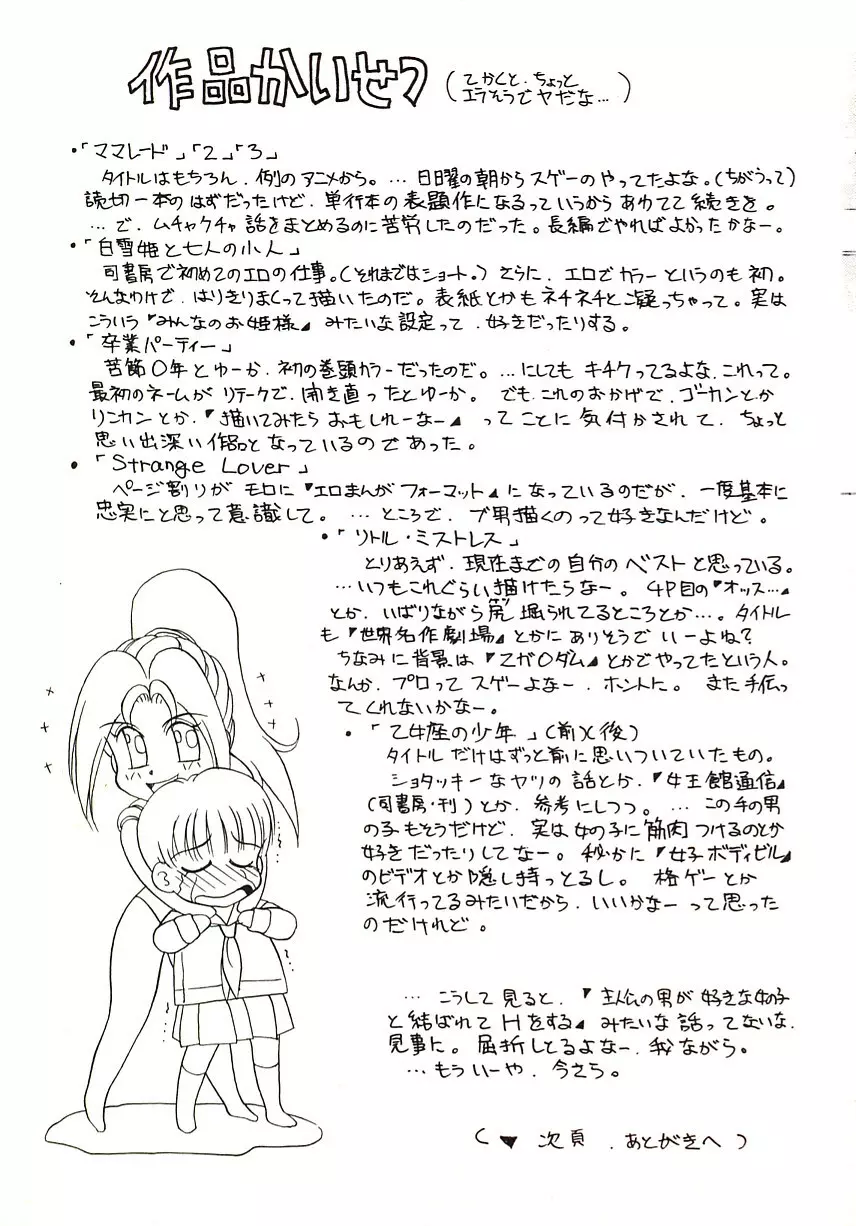 作品かいせつ
(とかくと、ちょっと
エラそうでヤだな…)
・「ママレード」「2」「3」
タイトルはもちろん、例のアニメから。…日曜の朝からスゲーのやってたよな。(ちがうって)
読切一本のはずだったけど、単行本の表題作になるっていうからあわてて続きを。
…で、ムチャクチャ話をまとめるのに苦労したのだった。長編でやればよかったかなー。
・「白雪姫と七人の小人」
司書房で初めてのエロの仕事。(それまではショート。)さらに、エロでカラーというのも初。
そんなわけで、はりきりまくって描いたのだ。表紙とかもネチネチと凝っちゃって。実は
こういう『みんなのお姫様』みたいな設定って、好きだったりする。
・「卒業パーティー」
苦節○年とゆーか、初の巻頭カラーだったのだ。…にしてもキチクってるよな、これって。
最初のネームがリテークで、開き直ったとゆーか。でも、これのおかげで、ゴーカンとか
リンカンとか、『描いてみたらおもしれーなー』ってことに気付かされて、ちょっと
思い出深い作品となっているのであった。
・「Strange Lover」
ページ割りがモロに『エロまんがフォーマット』になっているのだが、一度基本に
忠実にと思って意識して。…ところで、ブ男描くのって好きなんだけど。
・「リトル・ミストレス」
とりあえず、現在までの自分のベストと思っている。
…いつもこれぐらい描けたらなー。4P目の『オッス…』
とか、いばりながら尻掘られてるところとか…。タイトル
も『世界名作劇場』とかにありそうでいーよね?
ちなみに背景は『Zガ○ダム』とかでやってたという人。
なんか、プロってスゲーよなー、ホントに。また手伝っ
てくれないかなー。
・「乙女座の少年」(前)(後)
タイトルだけはずっと前に思いついていたもの。
ショタッキーなヤツの話とか、『女王館通信』
(司書房・刊)とか、参考にしつつ。…この手の男
の子もそうだけど、実は女の子に筋肉つけるのとか
好きだったりしてなー。秘かに『女子ボディビル』
のビデオとか隠し持っとるし。格ゲーとか
流行ってるみたいだから、いいかなーって思った
のだけれど。
…こうして見ると、『主人公の男が好きな女の子
と結ばれてHをする』みたいな話ってないな、
見事に。屈折してるよなー、我ながら。
…もういーや、今さら。
(▼次頁、あとがきへ)